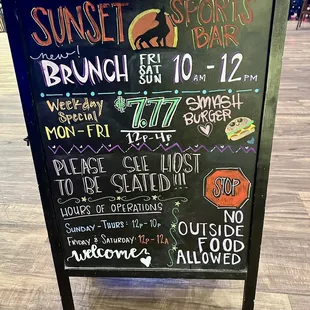 SUNSET SPORTS BAR
new!
BRUNCH FRI SAT SUN 10 AM - 12 PM
Weekday Special
MON - FRI
$7.77
12P-4P
SMASH BURGER
PLEASE SEE HOST
TO BE SEATED!!!
HOURS OF OPERATIONS
SUNDAY - THURS: 12P - 10P
FRIDAY & SATURDAY: 12P - 12A
welcome
STOP
NO
OUTSIDE
FOOD
ALLOWED